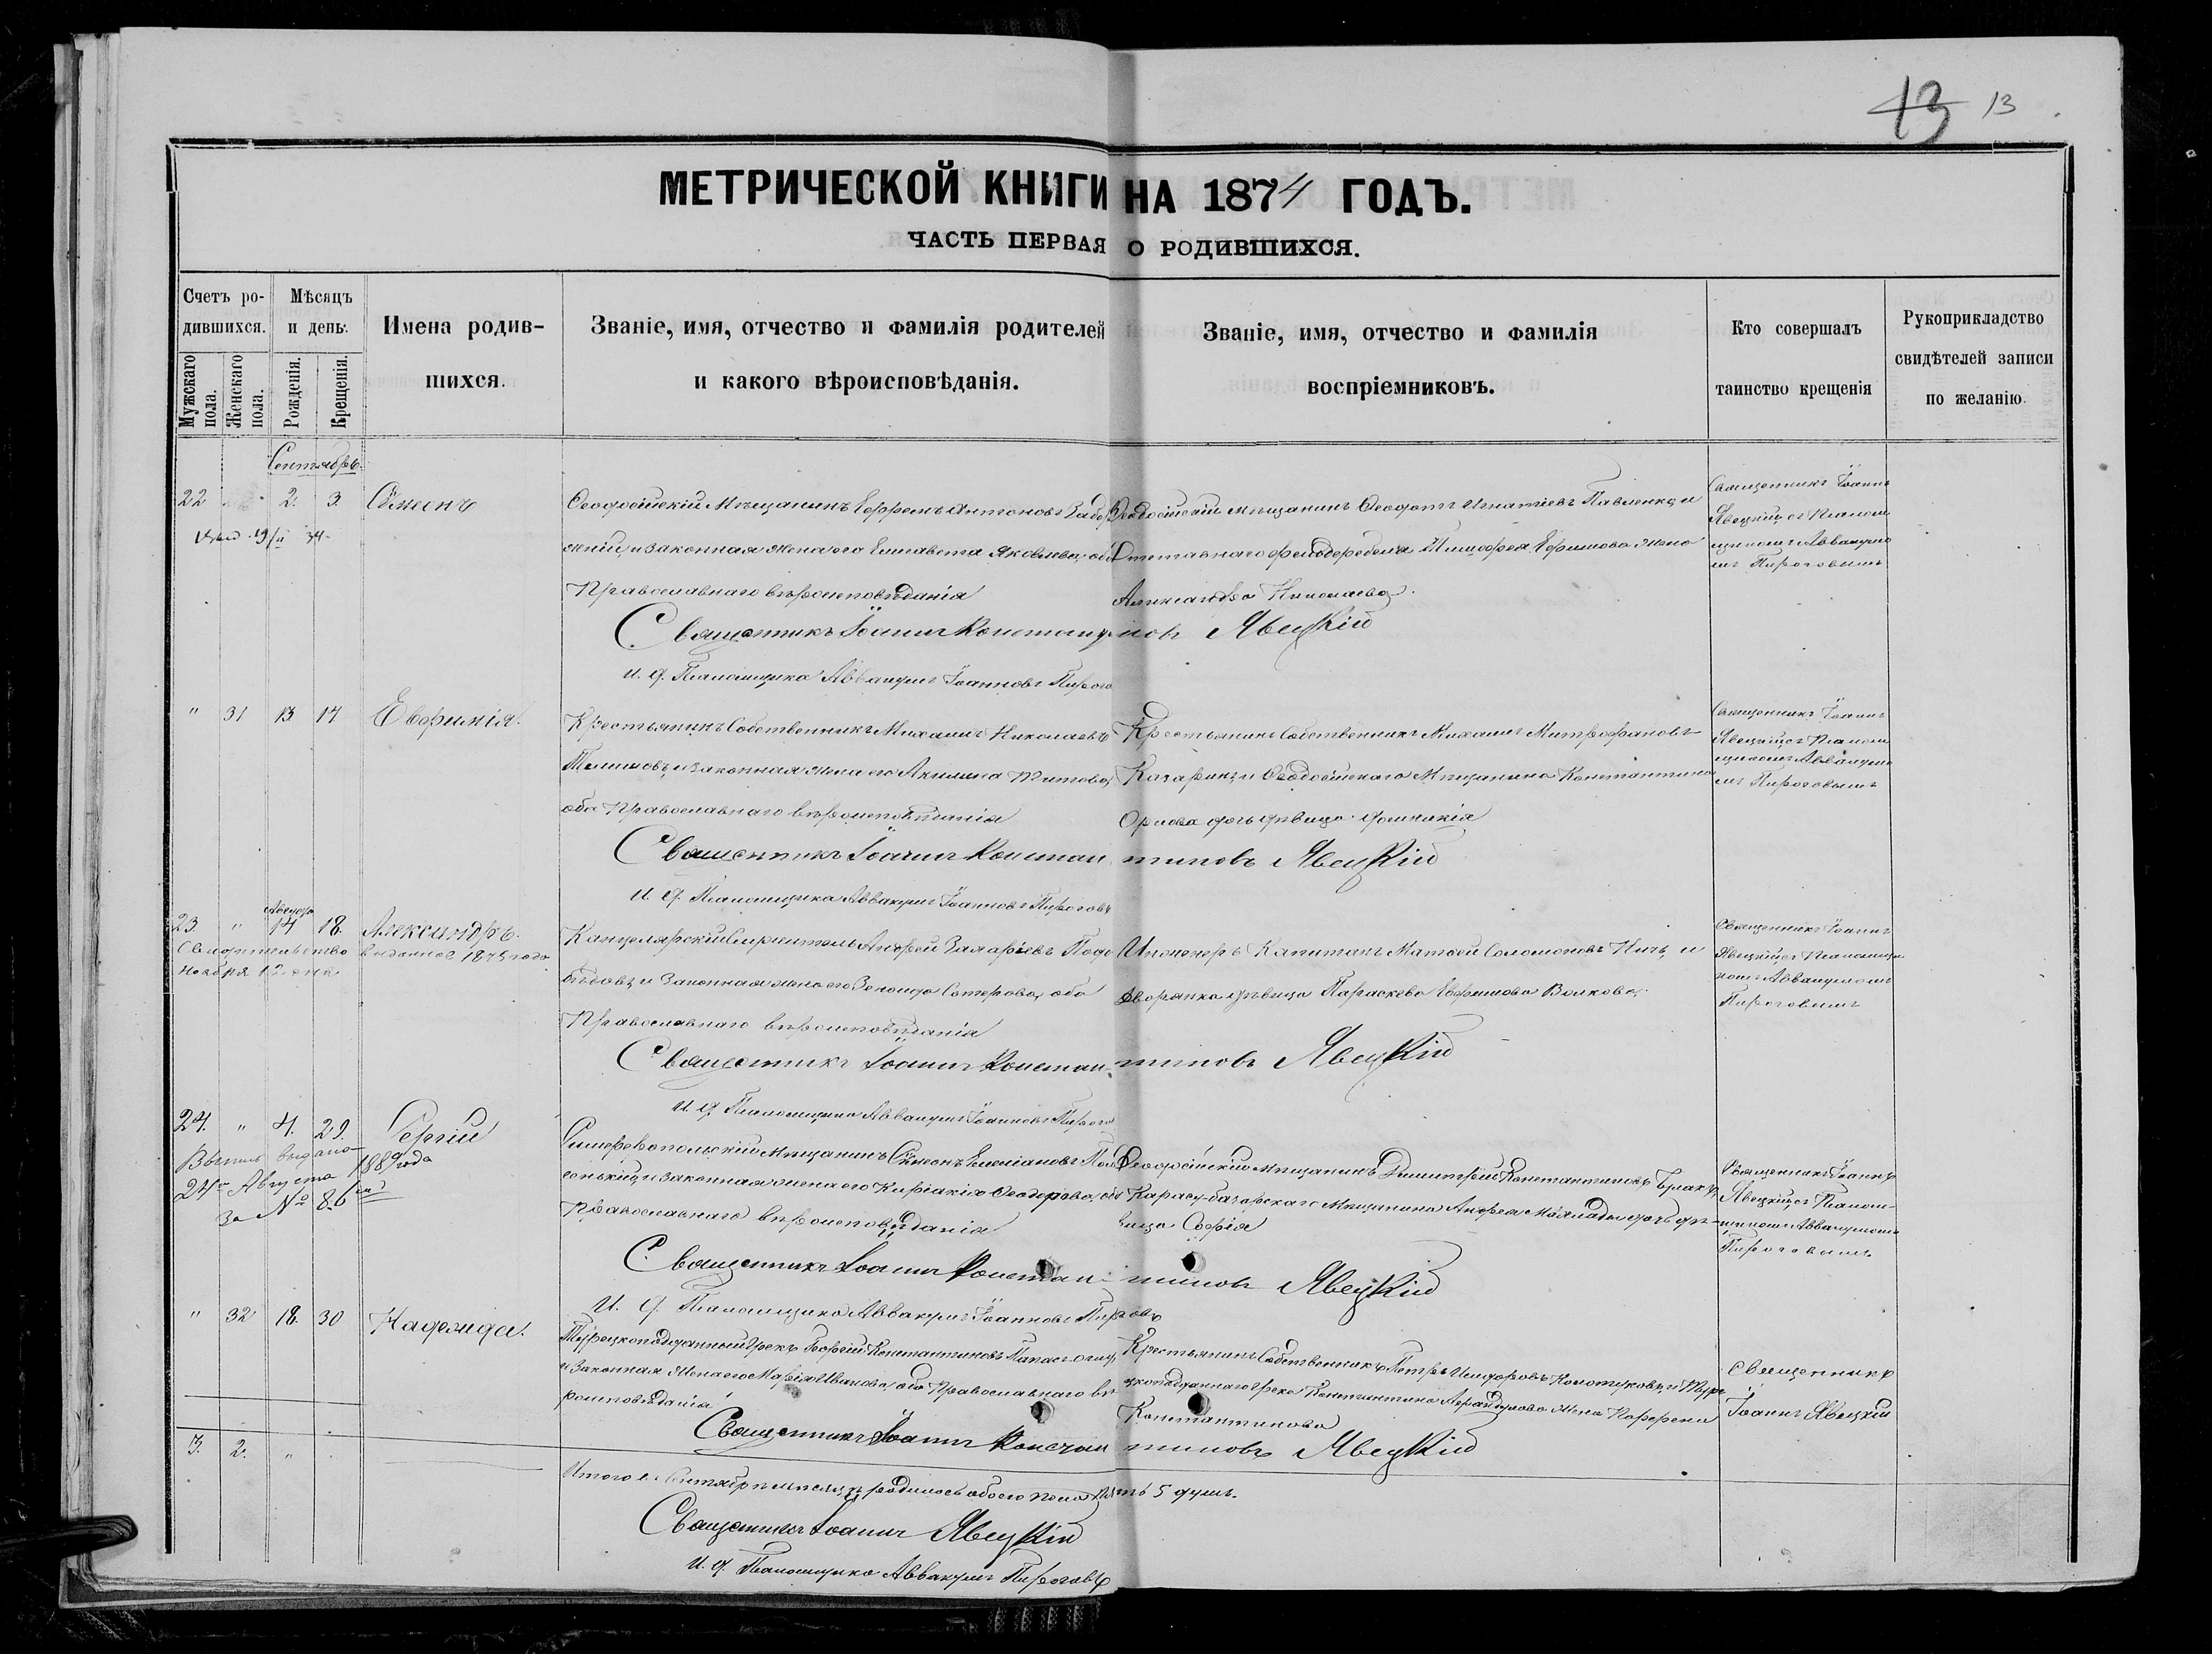 13 13
МЕТРИЧЕСКОЙ КНИГИ НА 1874 ГОДЪ.
ЧАСТЬ ПЕРВАЯ О РОДИВШИХСЯ.
Счетъ ро-
дившихся.
Мужскаго пола.
Женскаго пола.
Мѣсяцъ
и день.
Рожденія.
Крещенія.
Имена родив-
шихся.
Званіе, имя, отчество и фамилія родителей
и какого вѣроисповѣданія.
Званіе, имя, отчество и фамилія
воспріемниковъ.
Кто совершалъ
таинство крещенія
Рукоприкладство
свидѣтелей записи
по желанію.
Сентябрь.
22 2. 3. Сѵмеонъ
Ѳеодосійскій Мѣщанинъ Ефремъ Антоновъ
и законная жена его Елисавета Яковлева, оба
Православнаго вѣроисповѣданія
Ѳеодосійскій мѣщанинъ Ѳеодотъ Игнатіевъ Павленко, и
Отставнаго фельдфебеля Тимофея Ефимова жена
Александра Николаева.
Священникъ Іоаннъ
Явецкій съ Палам
щикомъ Аввакумо
мъ Пироговымъ
Священникъ Іоаннъ Константиновъ Явецкій
И. д. Паламщика Аввакумъ Іоанновъ Пирого
" 31 13 14 Евфимія.
Крестьянинъ Собственникъ Михаилъ Николаевъ
и законная жена его Акилина Титова,
оба Православнаго вѣроисповѣданія
Крестьянинъ Собственникъ Михаилъ Митрофановъ
и Ѳеодосійскаго Мѣщанина Константина
Орлова дочь дѣвица Домникія
Священникъ Іоаннъ
Явецкій съ Палам
щикомъ Аввакумо
мъ Пироговымъ
Священникъ Іоаннъ Константиновъ Явецкій
И. д. Паламщика Аввакумъ Іоанновъ Пироговъ
23. " Августа 14 18. Александръ.
Свидѣтельство выданное 1875 года
Ноября 12 дня.
Канцелярскій Служитель Андрей Захаріевъ
и Законная жена его Зенаида Сотерова, оба
Православнаго вѣроисповѣданія
Инженеръ Капитанъ Матѳей Соломоновъ и
дворянка дѣвица Параскева Ефимова Волкова.
Священникъ Іоаннъ
Явецкій съ Паламщи
комъ Аввакумомъ
Пироговымъ
Священникъ Іоаннъ Константиновъ Явецкій
И. д. Паламщика Аввакумъ Іоанновъ Пирого
24. " 4. 29. Сергій
Выпись выдана
24го Августа 1889 года
за № 86
Симферопольскій Мѣщанинъ Сѵмеонъ
и законная жена его Киріакія Ѳеодорова, оба
Православнаго вѣроисповѣданія
Ѳеодосійскій мѣщанинъ Димитрій Константиновъ
Карасу-базарскаго Мѣщанина Андрея дочь дѣ-
вица Софія
Священникъ Іоаннъ
Явецкій съ Палам-
щикомъ Аввакумомъ
Пироговымъ
Священникъ Іоаннъ Константиновъ Явецкій
И. д. Паламщика Аввакумъ Іоанновъ Пироговъ
" 32 18. 30 Надежда.
Турецкоподданный Грекъ Георгій Константиновъ
и Законная Жена его Марія Иванова, оба Православнаго вѣ
роисповѣданія
Крестьянинъ Собственникъ Петръ Исидоровъ и Туре
цкоподданнаго Грека Константина жена
Константинова
Священникъ
Іоаннъ Явецкій
Священникъ Іоаннъ Константиновъ Явецкій
3. 2. "
Итого въ Сентябрѣ мѣсяцѣ родилось обоего пола пять 5 душъ.
Священникъ Іоаннъ Явецкій
И. д. Паламщика Аввакумъ Пироговъ